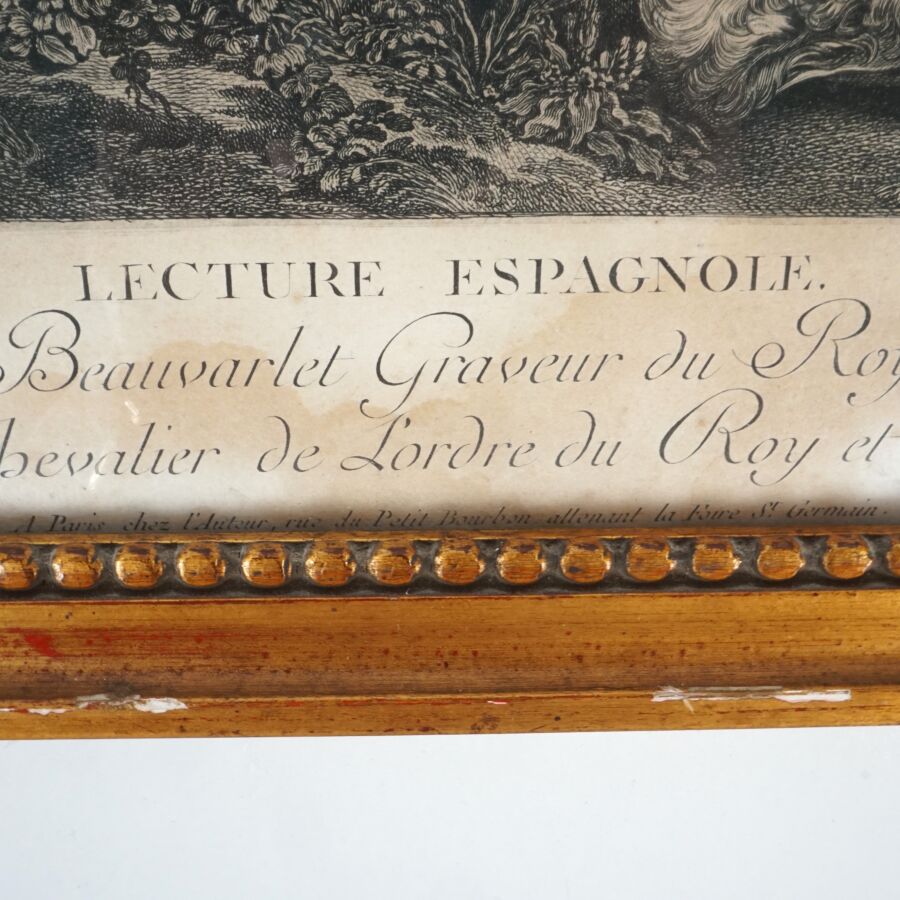 LECTURE ESPAGNOLE.
Beauvarlet Graveur du Roy
hevalier de L'ordre du Roy et
A Paris chez l'Auteur, rue du Petit Bourbon attenant la Foire St. Germain.